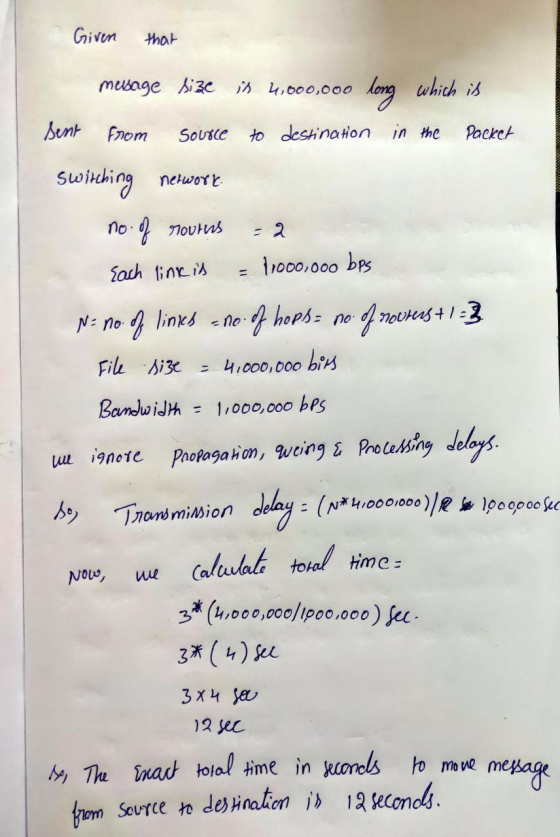 Given that
message size is 4,000,000 long which is
sent From source to destination in the Packet
switching network.
no. of routers = 2
Each link is = 1,000,000 bps
N = no. of links = no. of hops = no. of routers + 1 = 3
File size = 4,000,000 bits
Bandwidth = 1,000,000 bps
we ignore Propagation, queing & Processing delays.
So, Transmission delay = (N*4,000,000)/ 1,000,000 sec
Now, we calculate total time =
3*(4,000,000/1,000,000) sec.
3*(4) sec
3 x 4 sec
12 sec
So, The Exact total time in seconds to move message
from source to destination is 12 seconds.